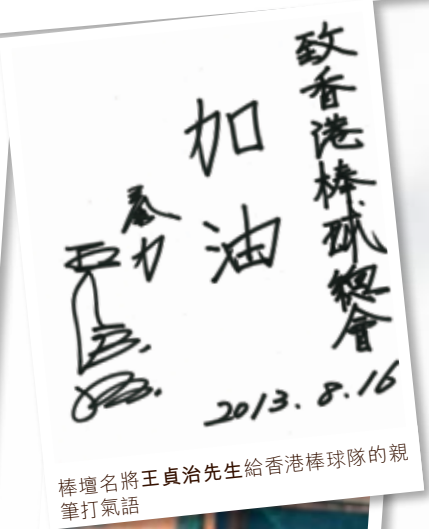 致香港棒球總會
加油
力
王貞治
2013.8.16
棒壇名將王貞治先生給香港棒球隊的親
筆打氣語